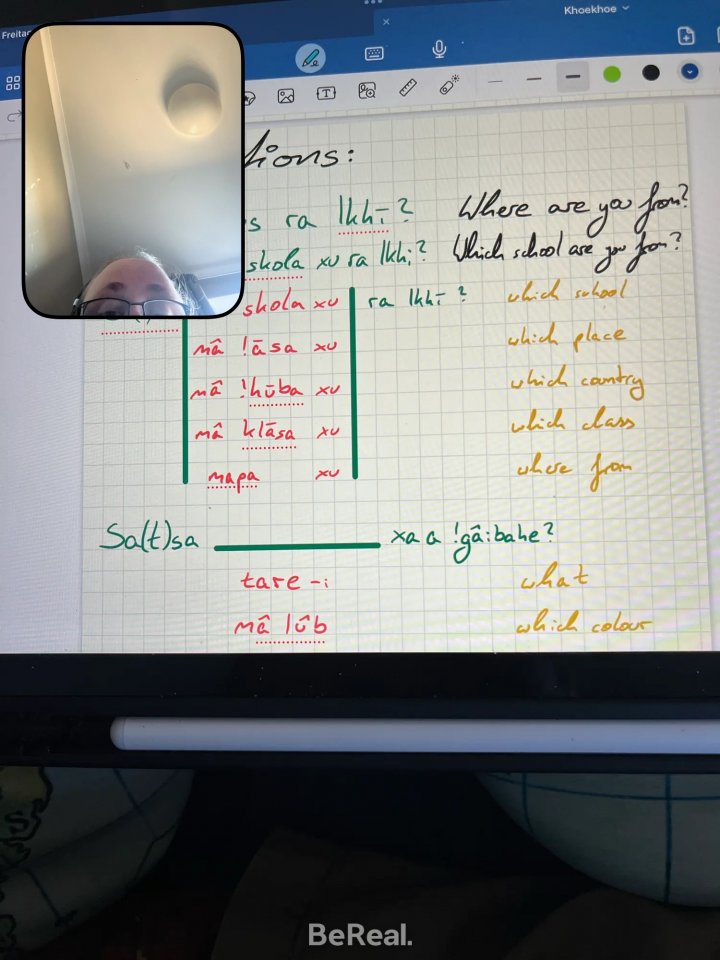 Freitag
Khoekhoe
tions:
s ra ǀkhī? Where are you from?
skola xu ra ǀkhī? Which school are you from?
skola xu ra ǀkhī? which school
mâ ǃāsa xu which place
mâ ǃhūba xu which country
mâ klāsa xu which class
mapa xu where from
Sa(t)sa ________ xa a ǃgâibahe?
tare-i what
mâ ǀûb which colour
BeReal.